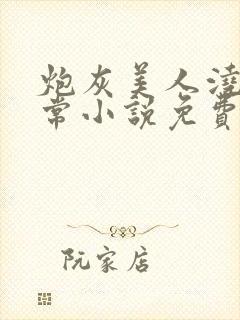 炮灰美人澆
常小說免費
阮家店